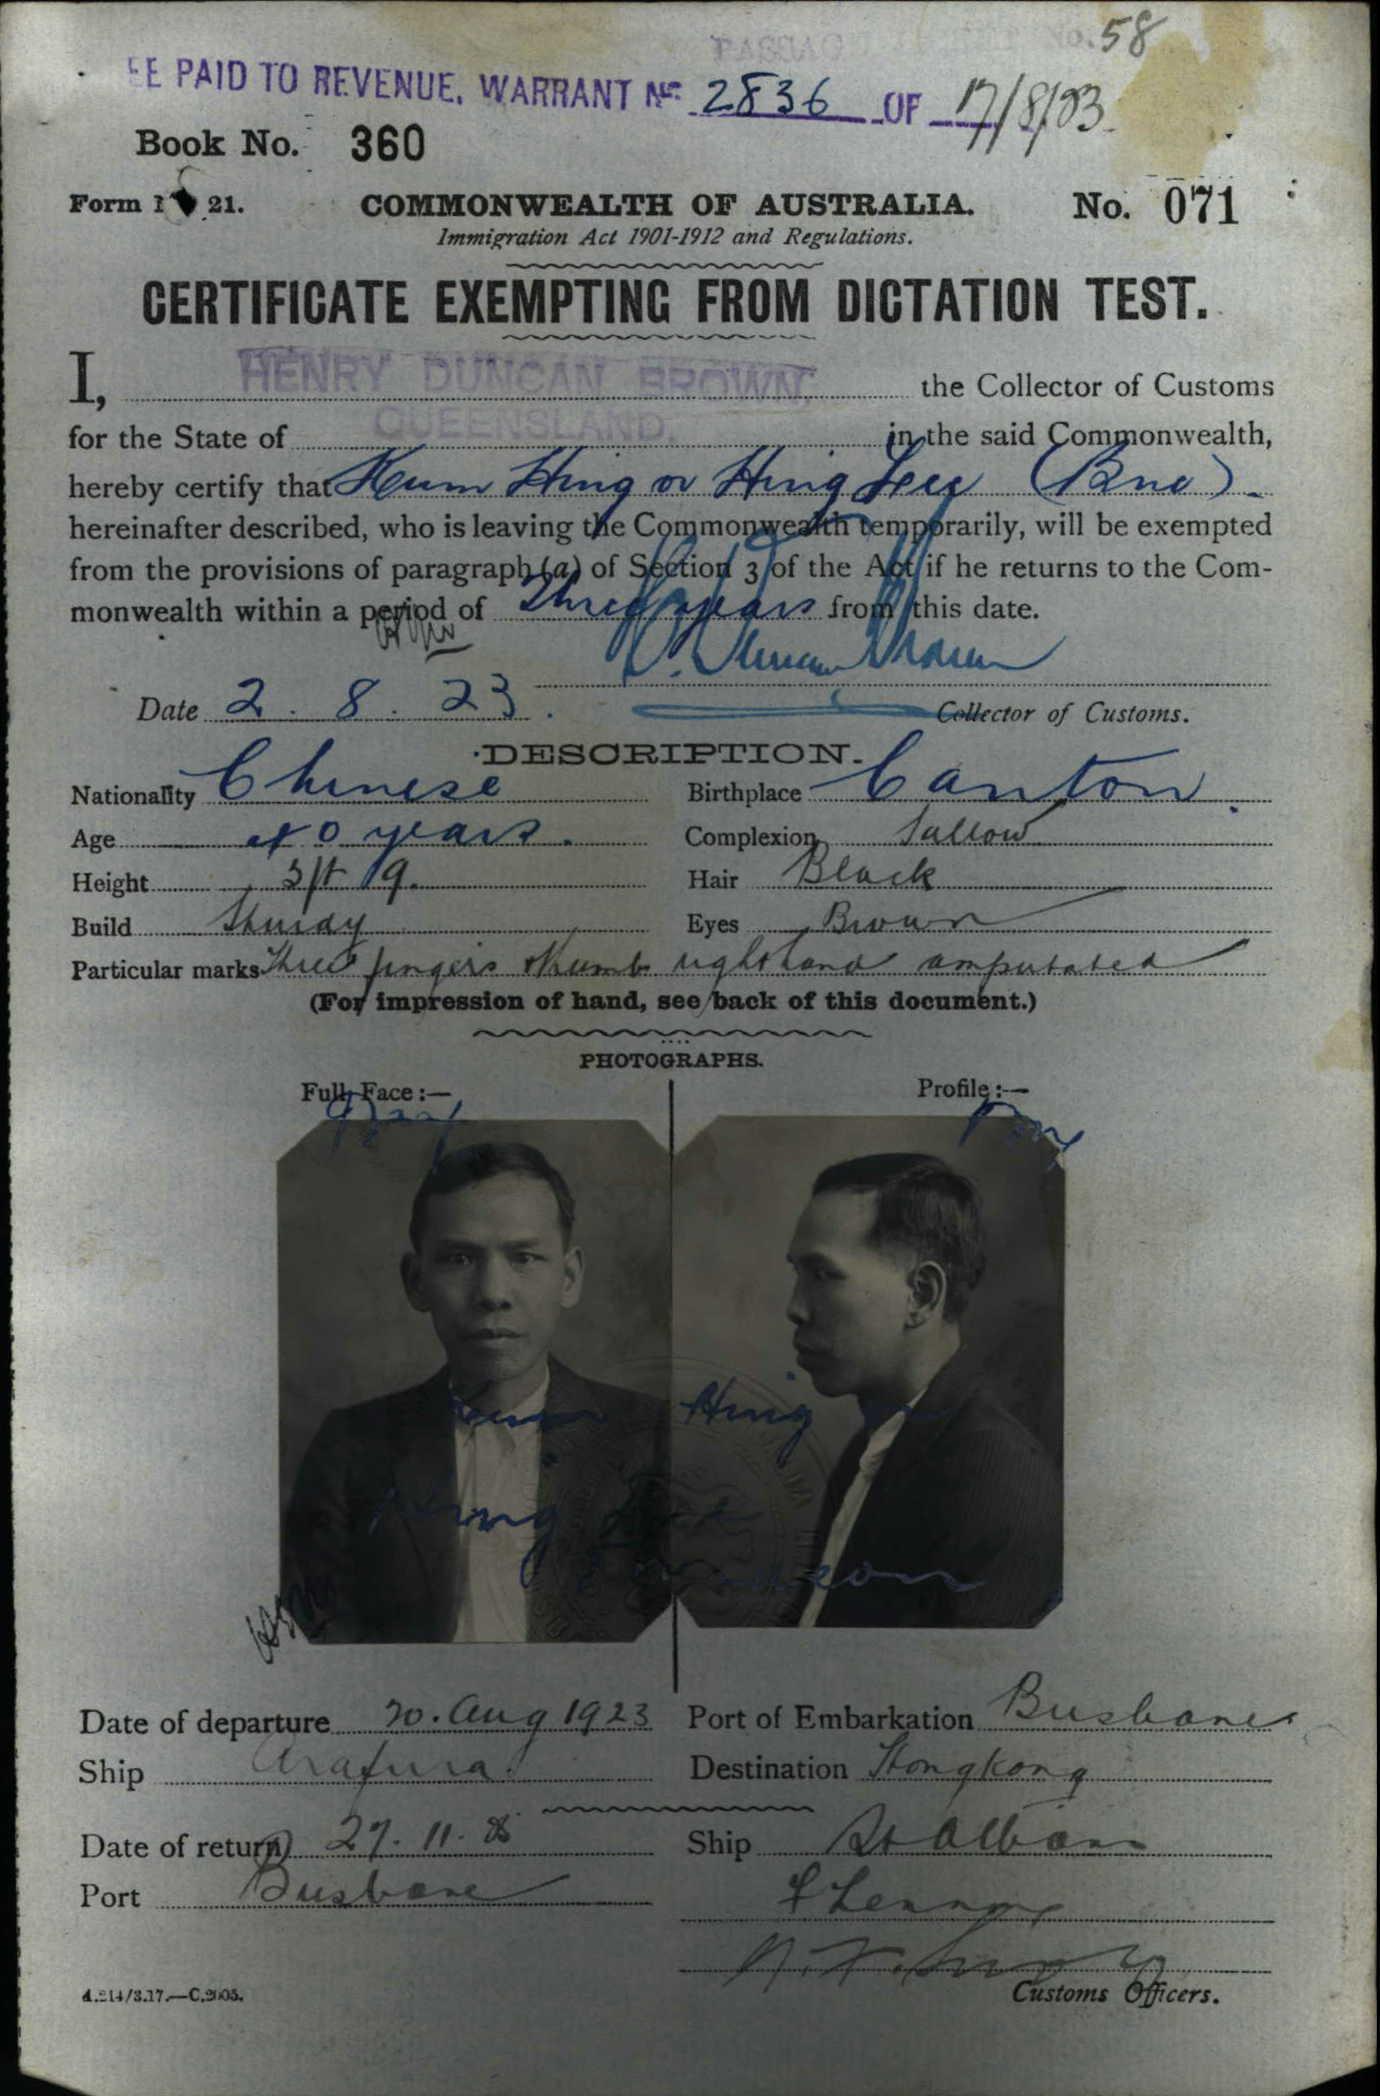 No. 58
FEE PAID TO REVENUE, WARRANT No. 2836 OF 17/8/23
Book No. 360
Form 21. COMMONWEALTH OF AUSTRALIA. No. 071
Immigration Act 1901-1912 and Regulations.
CERTIFICATE EXEMPTING FROM DICTATION TEST.
I, HENRY DUNCAN BROWN, the Collector of Customs
for the State of QUEENSLAND. in the said Commonwealth,
hereby certify that Kum Hing or Hing Lee (Bne)
hereinafter described, who is leaving the Commonwealth temporarily, will be exempted
from the provisions of paragraph (a) of Section 3 of the Act if he returns to the Com-
monwealth within a period of Three years from this date.
H. Duncan Brown
Date 2.8.23. Collector of Customs.
DESCRIPTION.
Nationality Chinese Birthplace Canton.
Age 40 years. Complexion Sallow
Height 5ft 9. Hair Black
Build Sturdy Eyes Brown
Particular marks Three fingers thumb right hand amputated
(For impression of hand, see back of this document.)
PHOTOGRAPHS.
Full Face:— Profile:—
Kum Hing or
Hing Lee
Date of departure 20. Aug 1923 Port of Embarkation Brisbane
Ship Arafura. Destination Hongkong
Date of return 27.11. Ship St Albans
Port Brisbane
Customs Officers.
A.214/3.17.—C.2005.